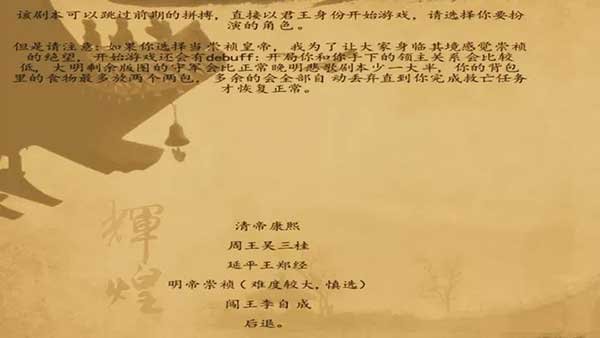 该剧本可以跳过前期的拼搏，直接以君王身份开始游戏，请选择你要扮
演的角色。
但是请注意：如果你选择当崇祯皇帝，我为了让大家身临其境感觉崇祯
的绝望，开始游戏还会有debuff：开局你和你手下的领主关系会比较
低，大明剩余版图的守军会比正常晚明悲歌剧本少一大半，你的背包
里的食物最多放两个两包，多余的会全部自动丢弃直到你完成救亡任务
才恢复正常。
輝煌
清帝康熙
周王吴三桂
延平王郑经
明帝崇祯（难度较大，慎选）
闯王李自成
后退。